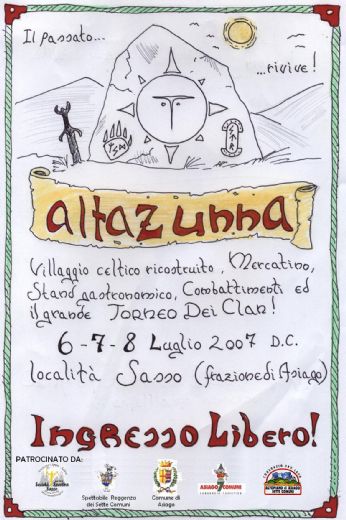 Il passato...
...rivive!
altazunna
Villaggio celtico ricostruito, Mercatino,
Stand gastronomico, Combattimenti ed
il grande Torneo Dei Clan!
6-7-8 Luglio 2007 D.C.
località Sasso (frazione di Asiago)
Ingresso Libero!
PATROCINATO DA:
Spettabile Reggenza
dei Sette Comuni
Comune di
Asiago
ASIAGO 7 COMUNI